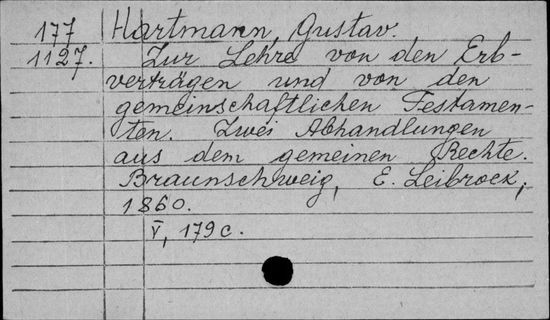 177 Hartmann, Gustav.
1127. Zur Lehre von den Erb-
verträgen und von den
gemeinschaftlichen Testamen-
ten. Zwei Abhandlungen
aus dem gemeinen Rechte.
Braunschweig, E. Leibrock,
1860.
V, 179 c.